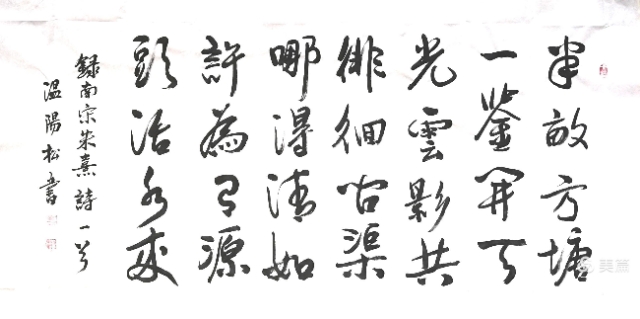 半畝方塘
一鉴開天
光雲影共
徘徊问渠
哪得清如
許為有源
頭活水來
録南宗朱熹詩一首
温陽松書
美篇